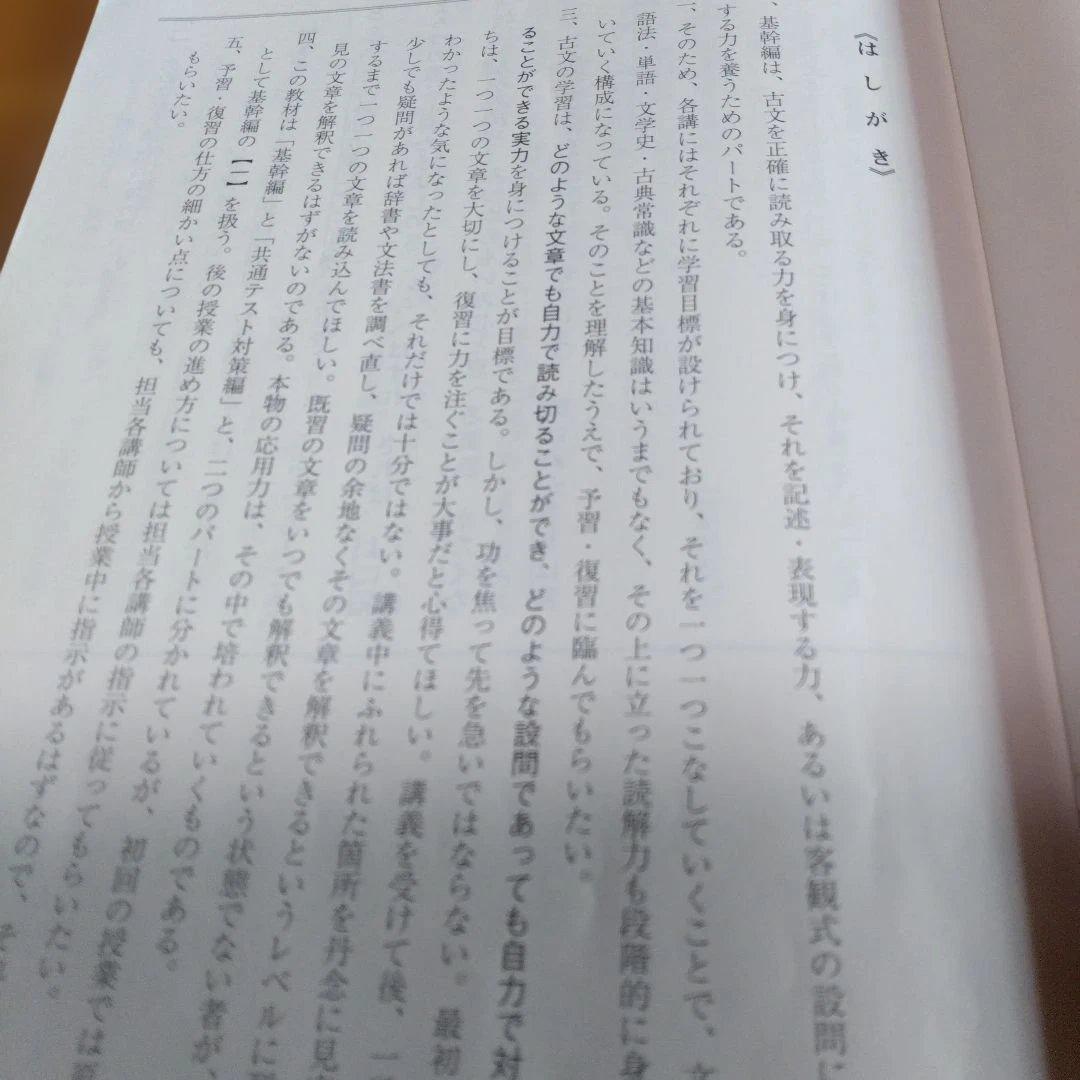 《はしがき》
、基幹編は、古文を正確に読み取る力を身につけ、それを記述・表現する力、あるいは客観式の設問に
する力を養うためのパートである。
、そのため、各講にはそれぞれに学習目標が設けられており、それを一つ一つこなしていくことで、文
語法・単語・文学史・古典常識などの基本知識はいうまでもなく、その上に立った読解力も段階的に身
いていく構成になっている。そのことを理解したうえで、予習・復習に臨んでもらいたい。
三、古文の学習は、どのような文章でも自力で読み切ることができ、どのような設問であっても自力で対
ることができる実力を身につけることが目標である。しかし、功を焦って先を急いではならない。最初
ちは、一つ一つの文章を大切にし、復習に力を注ぐことが大事だと心得てほしい。講義を受けて後、一
わかったような気になったとしても、それだけでは十分ではない。講義中にふれられた箇所を丹念に見
少しでも疑問があれば辞書や文法書を調べ直し、疑問の余地なくその文章を解釈できるというレベルに
するまで一つ一つの文章を読み込んでほしい。既習の文章をいつでも解釈できるという状態でない者が、
見の文章を解釈できるはずがないのである。本物の応用力は、その中で培われていくものである。
四、この教材は「基幹編」と「共通テスト対策編」と、二つのパートに分かれているが、初回の授業では
として基幹編の【一】を扱う。後の授業の進め方については担当各講師の指示に従ってもらいたい。
五、予習・復習の仕方の細かい点についても、担当各講師から授業中に指示があるはずなので、
もらいたい。